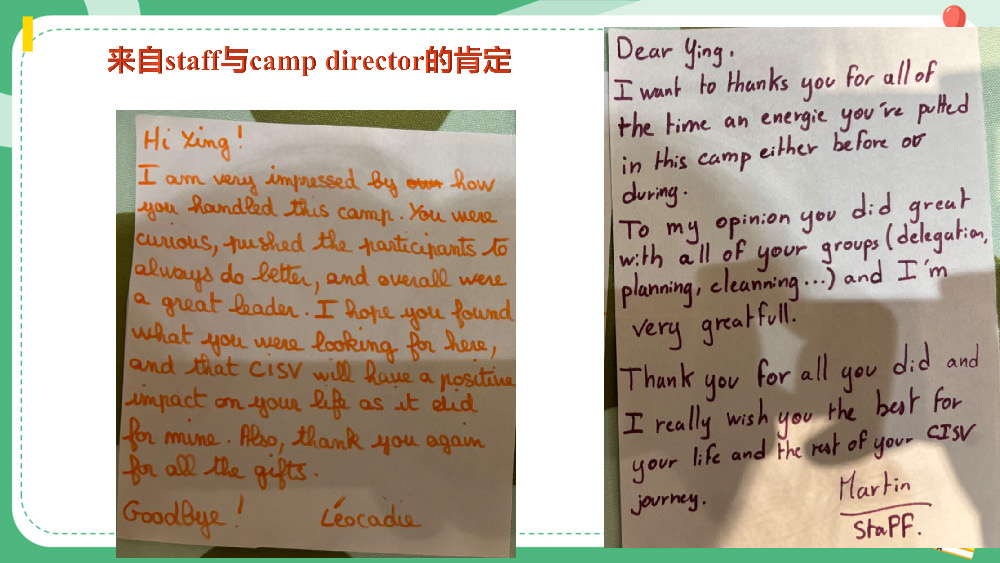 来自staff与camp director的肯定
Hi Xing!
I am very impressed by how
you handled this camp. You were
curious, pushed the participants to
always do better, and overall were
a great leader. I hope you found
what you were looking for here,
and that CISV will have a positive
impact on your life as it did
for mine. Also, thank you again
for all the gifts.
Goodbye! Léocadie
Dear Ying,
I want to thanks you for all of
the time an energie you've putted
in this camp either before or
during.
To my opinion you did great
with all of your groups (delegation,
planning, cleanning...) and I'm
very greatfull.
Thank you for all you did and
I really wish you the best for
your life and the rest of your CISV
journey.
Martin
Staff.